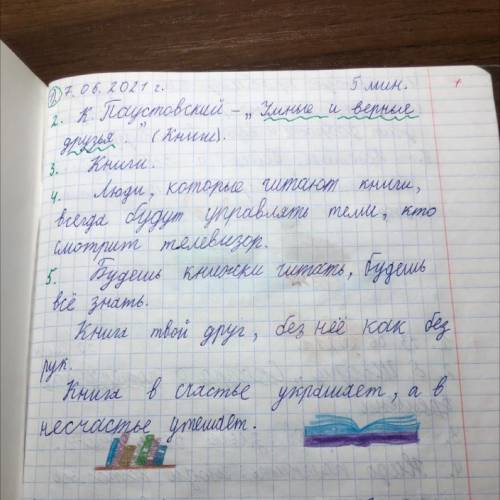 ② 7.06.2021 г. 5 мин.
2. К. Паустовский - „Умные и верные
друзья." (Книги).
3. Книги.
4. Люди, которые читают книги,
всегда будут управлять теми, кто
смотрит телевизор.
5. Будешь книжки читать, будешь
всё знать.
Книга твой друг, без неё как без
рук.
Книга в счастье украшает, а в
несчастье утешает.